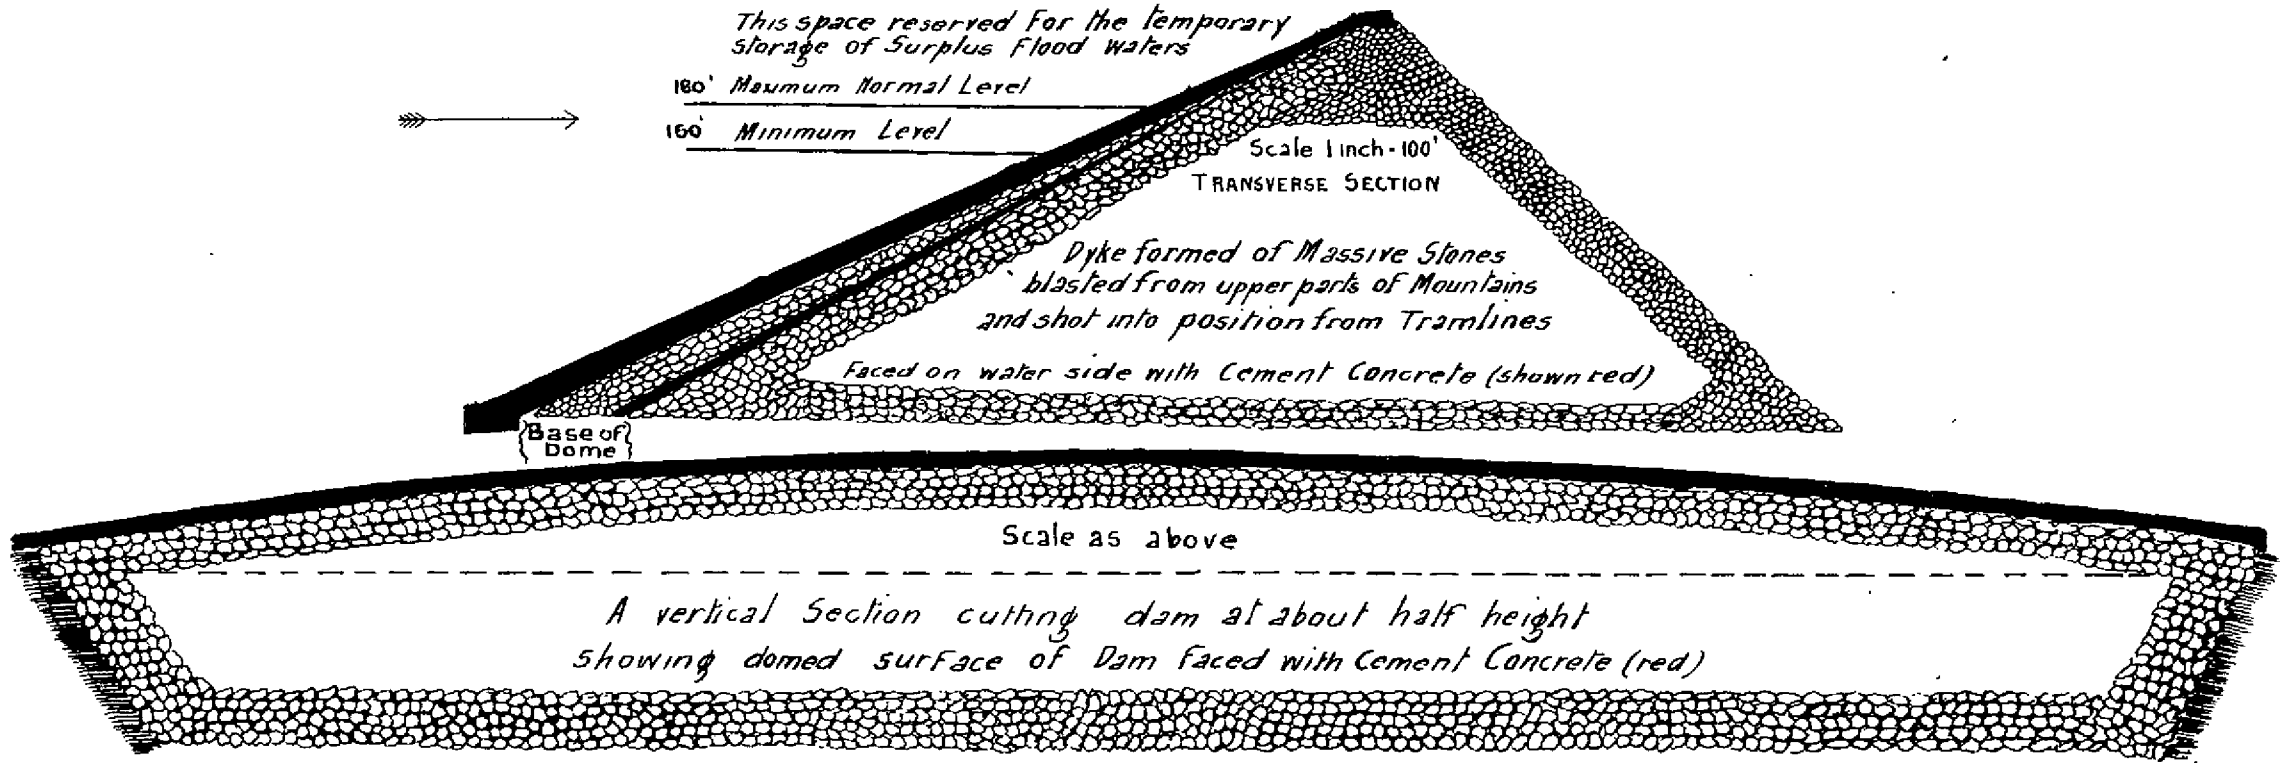 This space reserved For the temporary
storage of Surplus Flood Waters
180' Maximum Normal Level
160' Minimum Level
Scale 1 inch - 100'
TRANSVERSE SECTION
Dyke formed of Massive Stones
blasted from upper parts of Mountains
and shot into position from Tramlines
Faced on water side with Cement Concrete (shown red)
{Base of
Dome}
Scale as above
A vertical Section cutting dam at about half height
showing domed surface of Dam Faced with Cement Concrete (red)